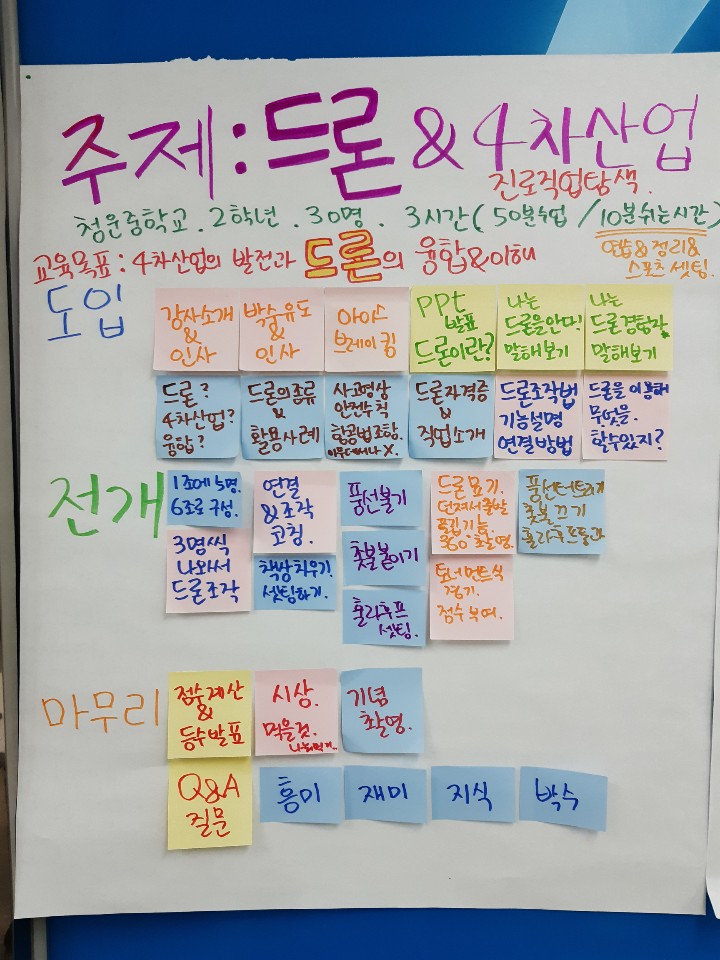 주제:드론 & 4차산업
진로직업탐색.
청운중학교. 2학년. 30명. 3시간(50분수업 / 10분쉬는시간)
연습&정리&
스포츠셋팅.
교육목표: 4차산업의 발전과 드론의 융합&이해
도입
강사소개
&
인사
박수유도
&
인사
아이스
브레이킹
PPt
발표
드론이란?
나는
드론을안다!
말해보기
나는
드론경험자
말해보기
드론?
4차산업?
융합?
드론의종류
&
활용사례
사고영상
안전수칙
항공법조항.
아무데서나X.
드론자격증
&
직업소개
드론조작법
기능설명
연결방법
드론을 이용해
무엇을.
할수있지?
전개
1조에 5명.
6조로 구성.
연결
&조작
코칭.
풍선불기
드론묘기.
던져서출발
뒤집기기능.
360°촬영.
풍선터트리기
촛불끄기
훌라후프통과
3명씩
나와서
드론조작
책상치우기.
셋팅하기.
촛불붙이기
훌라후프
셋팅.
토너먼트식
경기.
점수부여.
마무리
점수계산
&
등수발표
시상.
먹을것.
나눠먹기..
기념
촬영.
Q&A
질문
흥미
재미
지식
박수